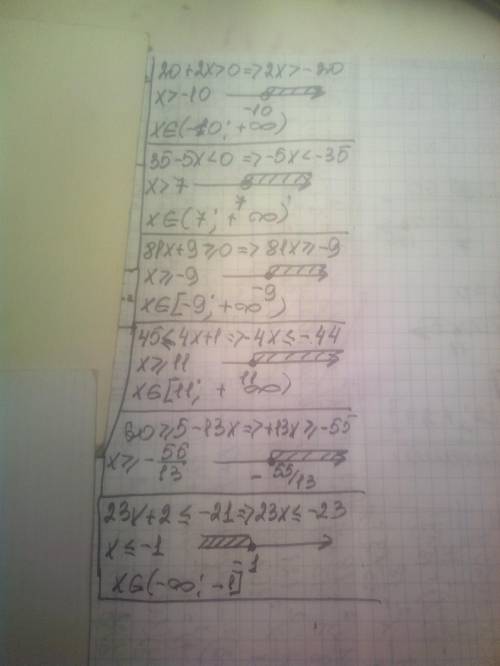 20+2x>0=>2x>-20
x>-10
-10
x∈(-10; +∞)
35-5x<0=>-5x<-35
x>7
7
x∈(7; +∞)
81x+9≥0=>81x≥-9
x≥-9
-9
x∈[-9; +∞)
45≤4x+1=>-4x≤-44
x≥11
11
x∈[11; +∞)
60≥5-13x=>+13x≥-55
x≥-55/13
-55/13
23x+2≤-21=>23x≤-23
x≤-1
-1
x∈(-∞; -1]